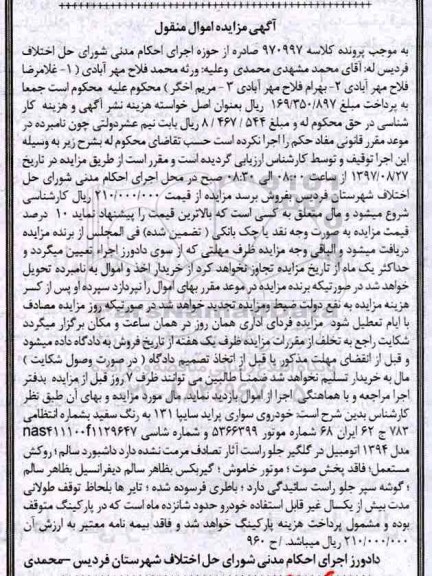 آگهی مزایده اموال منقول
به موجب پرونده کلاسه ۹۷۰۹۹۷ صادره از حوزه اجرای احکام مدنی شورای حل اختلاف
فردیس له: آقای محمد مشهدی محمدی وعلیه: ورثه محمد فلاح مهر آبادی ( ۱- غلامرضا
فلاح مهر آبادی ۲- بهرام فلاح مهر آبادی ۳ - مریم اخگر ) محکوم علیه محکوم است جمعا
به پرداخت مبلغ ۱۶۹/۳۵۰/۸۹۷ ریال بعنوان اصل خواسته هزینه نشر آگهی و هزینه کار
شناسی در حق محکوم له و مبلغ ۵۴۴ / ۴۶۷ / ۸ ریال بابت نیم عشردولتی چون نامبرده در
موعد مقرر قانونی مفاد حکم را اجرا نکرده است حسب تقاضای محکوم له بشرح زیر به وسیله
این اجرا توقیف و توسط کارشناس ارزیابی گردیده است و مقرر است از طریق مزایده در تاریخ
۱۳۹۷/۰۸/۲۷ از ساعت ۰۸:۰۰ الی ۰۸:۳۰ صبح در محل اجرای احکام مدنی شورای حل
اختلاف شهرستان فردیس بفروش برسد مزایده از قیمت ۲۱۰/۰۰۰/۰۰۰ ریال کارشناسی
شروع میشود و مال متعلق به کسی است که بالاترین قیمت را پیشنهاد نماید ۱۰ درصد
قیمت مزایده به صورت وجه نقد یا چک بانکی ( تضمین شده) فی المجلس از برنده مزایده
دریافت میشود و الباقی وجه مزایده ظرف مهلتی که از سوی دادورز اجراء تعیین میگردد و
حداکثر یک ماه از تاریخ مزایده تجاوز نخواهد کرد از خریدار اخذ و اموال به نامبرده تحویل
خواهد شد در صورتیکه برنده مزایده در موعد مقرر بهای اموال را نپردازد سپرده او پس از کسر
هزینه مزایده به نفع دولت ضبط ومزایده تجدید خواهد شد در صورتیکه روز مزایده مصادف
با ایام تعطیل شود مزایده فردای اداری همان روز در همان ساعت و مکان برگزار میگردد
شکایت راجع به تخلف از مقررات مزایده ظرف یک هفته از تاریخ فروش به دادگاه داده میشود
و قبل از انقضای مهلت مذکور یا قبل از اتخاذ تصمیم دادگاه ( در صورت وصول شکایت )
مال به خریدار تسلیم نخواهد شد ضمناً طالبین می توانند ظرف ۷ روز قبل از مزایده بدفتر
اجرا مراجعه و با هماهنگی اجرا از اموال بازدید نماید مال مورد مزایده و بهای آن طبق نظر
کارشناس بدین شرح است: خودروی سواری پراید سایپا ۱۳۱ به رنگ سفید بشماره انتظامی
۷۸۳ ج ۶۲ ایران ۶۸ شماره موتور ۵۳۶۶۳۹۹ و شماره شاسی nas۴۱۱۱۰۰f۱۱۲۹۶۴۷
مدل ۱۳۹۴ اتومبیل در گلگیر جلو راست آثار تصادف مرمت نشده دارد داشبورد سالم ؛ روکش
مستعمل؛ فاقد پخش صوت ؛ موتور خاموش ؛ گیربکس بظاهر سالم دیفرانسیل بظاهر سالم
؛ گوشه سپر جلو راست سائیدگی دارد ؛ باطری فرسوده شده ؛ تایر ها بلحاظ توقف طولانی
مدت بیش از یکسال غیر قابل استفاده خودرو حدود شانزده ماه است که در پارکینگ متوقف
بوده و مشمول پرداخت هزینه پارکینگ خواهد شد و فاقد بیمه نامه معتبر به ارزش آن
۲۱۰/۰۰۰/۰۰۰ ریال میباشد. /ح ۹۶۰
دادورز اجرای احکام مدنی شورای حل اختلاف شهرستان فردیس -محمدی